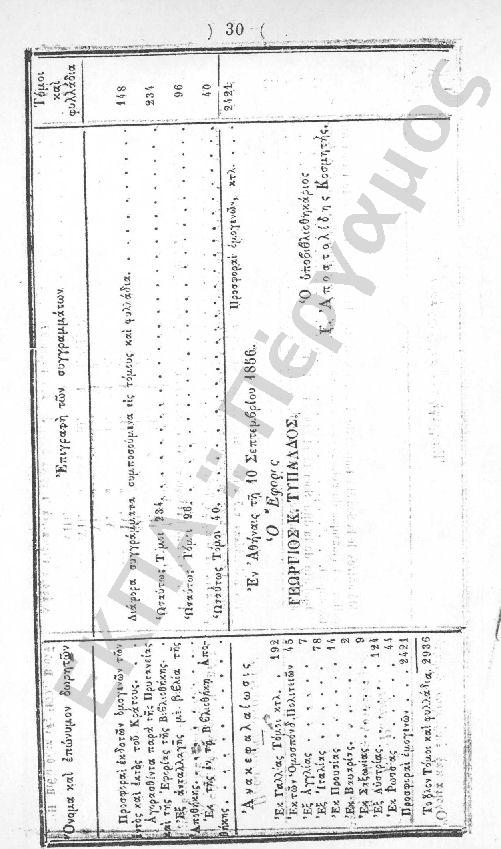 ) 30 (
Ὄνομα καὶ ἐπώνυμον δωρητῶν
Ἐπιγραφὴ τῶν συγγραμμάτων.
Τόμοι
καὶ
φυλλάδια
Προσφοραὶ ἐκδοτῶν ὁμογενῶν τῶν
ἐντὸς καὶ ἐκτὸς τοῦ Κράτους.
Διάφορα συγγράμματα συμποσούμενα εἰς τόμους καὶ φυλλάδια. 148
Ἀγορασθέντα παρὰ τῆς Πρυτανείας
καὶ τῆς Ἐφορείας τῆς Βιβλιοθήκης.
Ὡσαύτως Τόμοι 234. 234
Ἐξ ἀνταλλαγῆς μὲ βιβλία τῆς
Ἀποθήκης.
Ὡσαύτως Τόμοι 96. 96
Ἐκ τῆς ἐν τῇ Βιβλιοθήκῃ Ἀπο-
θήκης.
Ὡσαύτως Τόμοι 40. 40
Προσφοραὶ ὁμογενῶν, κτλ. 2421
Ἀνακεφαλαίωσις
Ἐκ Γαλλίας Τόμοι κτλ. 192
Ἐκ τῶν Ὁμοσπόνδ. Πολιτειῶν 45
Ἐξ Ἀγγλίας 7
Ἐξ Ἰταλίας 78
Ἐκ Πρωσίας 14
Ἐκ Βαυαρίας. 2
Ἐκ Σαξωνίας. 9
Ἐξ Αὐστρίας. 124
Ἐκ Ῥωσσίας 44
Προσφοραὶ ὁμογενῶν 2421
Τὸ ὅλον Τόμοι καὶ φυλλάδια, 2936
Ἐν Ἀθήναις τῇ 10 Σεπτεμβρίου 1856.
Ὁ Ἔφορος
ΓΕΩΡΓΙΟΣ Κ. ΤΥΠΑΛΔΟΣ.
Ὁ ὑποβιβλιοθηκάριος
Γ. Ἀποστολίδης Κοσμητής.
ΕΚΠΑ Πέργαμος